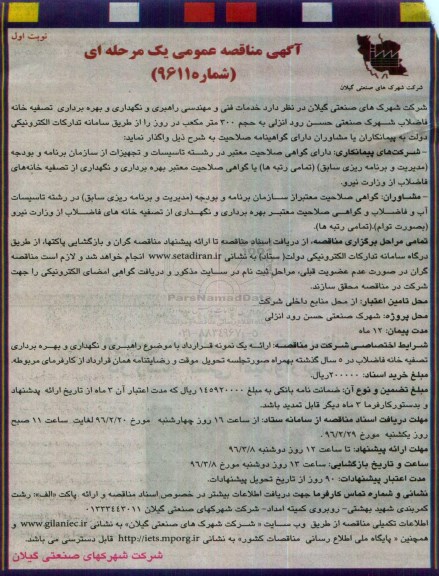 نوبت اول
آگهی مناقصه عمومی یک مرحله ای
(شماره ۹۶۱۱)
شرکت شهرک های صنعتی گیلان
شرکت شهرک های صنعتی گیلان در نظر دارد خدمات فنی و مهندسی راهبری و نگهداری و بهره برداری تصفیه خانه
فاضلاب شهرک صنعتی حسن رود انزلی به حجم ۳۰۰ متر مکعب در روز را از طریق سامانه تدارکات الکترونیکی
دولت به پیمانکاران یا مشاوران دارای گواهینامه صلاحیت به شرح ذیل واگذار نماید:
- شرکت‌های پیمانکاری: دارای گواهی صلاحیت معتبر در رشته تاسیسات و تجهیزات از سازمان برنامه و بودجه
(مدیریت و برنامه ریزی سابق) (تمامی رتبه ها) یا گواهی صلاحیت معتبر بهره برداری و نگهداری از تصفیه خانه‌های
فاضلاب از وزارت نیرو.
- مشاوران: گواهی صلاحیت معتبر از سازمان برنامه و بودجه (مدیریت و برنامه ریزی سابق) در رشته تاسیسات
آب و فاضلاب و گواهی صلاحیت معتبر بهره برداری و نگهداری از تصفیه خانه های فاضلاب از وزارت نیرو
(بصورت توام). (تمامی رتبه ها).
تمامی مراحل برگزاری مناقصه، از دریافت اسناد مناقصه تا ارائه پیشنهاد مناقصه گران و بازگشایی پاکتها، از طریق
درگاه سامانه تدارکات الکترونیکی دولت( ستاد) به نشانی www.setadiran.ir انجام خواهد شد و لازم است مناقصه
گران در صورت عدم عضویت قبلی، مراحل ثبت نام در سایت مذکور و دریافت گواهی امضای الکترونیکی را جهت
شرکت در مناقصه محقق سازند.
محل تامین اعتبار: از محل منابع داخلی شرکت
محل پروژه: شهرک صنعتی حسن رود انزلی
مدت پیمان: ۱۲ ماه
شرایط اختصاصی شرکت در مناقصه: ارائه یک نمونه قرارداد با موضوع راهبری و نگهداری و بهره برداری
تصفیه خانه فاضلاب در ۵ سال گذشته بهمراه صورتجلسه تحویل موقت و رضایتنامه همان قرارداد از کارفرمای مربوطه.
مبلغ خرید اسناد: ۲۰۰۰۰۰ ریال.
مبلغ تضمین و نوع آن: ضمانت نامه بانکی به مبلغ ۱۴۵۹۲۰۰۰۰ ریال که مدت اعتبار آن ۳ ماه از تاریخ ارائه پیشنهاد
و بدستور کارفرما ۳ ماه دیگر قابل تمدید باشد.
مهلت دریافت اسناد مناقصه از سامانه ستاد: از ساعت ۱۶ روز چهارشنبه مورخ ۹۶/۲/۲۰ لغایت ساعت ۱۱ صبح
روز یکشنبه مورخ ۹۶/۲/۲۹.
مهلت ارائه پیشنهاد: تا ساعت ۱۲ روز دوشنبه مورخ ۹۶/۳/۸
ساعت و تاریخ بازگشایی: ساعت ۱۳ روز دوشنبه مورخ ۹۶/۳/۸
مدت اعتبار پیشنهادات: ۹۰ روز از تاریخ تحویل پیشنهادات.
نشانی و شماره تماس کارفرما جهت دریافت اطلاعات بیشتر در خصوص اسناد مناقصه و ارائه پاکت «الف»: رشت
کمربندی شهید بهشتی- روبروی کمیته امداد- شرکت شهرکهای صنعتی گیلان ۰۱۳۳۳۴۴۳۰۱۱
اطلاعات تکمیلی مناقصه از طریق وب سایت « شرکت شهرک های صنعتی گیلان» به نشانی www.gilaniec.ir و
همچنین « پایگاه ملی اطلاع رسانی مناقصات کشور» به نشانی http://iets.mporg.ir قابل دسترسی می باشد.
شرکت شهرکهای صنعتی گیلان